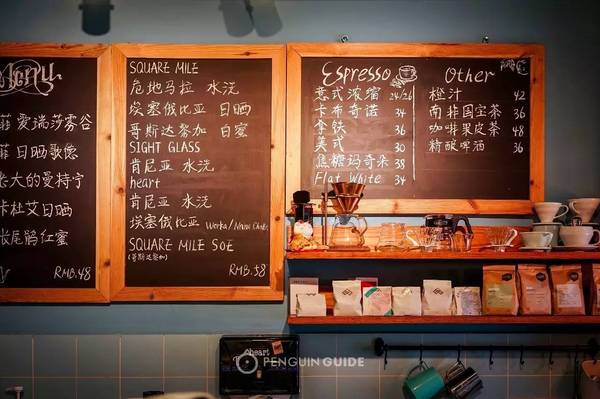 Menu
菲 爱瑞莎雾谷
菲 日晒歌德
老大的曼特宁
卡杜艾日晒
长尾鹃红蜜
RMB.48
SQUARE MILE
危地马拉 水洗
埃塞俄比亚 日晒
哥斯达黎加 白蜜
SIGHT GLASS
肯尼亚 水洗
heart
肯尼亚 水洗
埃塞俄比亚
SQUARE MILE SOE
(哥斯达黎加)
RMB.58
Espresso
意式浓缩 24/26
卡布奇诺 34
拿铁 36
美式 30
焦糖玛奇朵 38
Flat White 34
Other
橙汁 42
南非国宝茶 36
咖啡果皮茶 48
精酿啤酒 36
heart
PENGUIN GUIDE